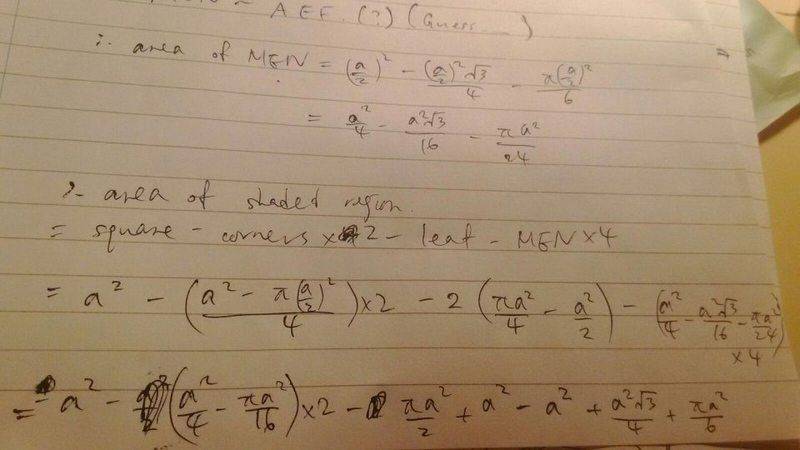 A E F. (?) (Guess....)
∴ area of MEN = (a/2)² - (a/2)²√3/4 - π(a/2)²/6
= a²/4 - a²√3/16 - πa²/24
∴ area of shaded region.
= square - corners ×2 - leaf - MEN ×4
= a² - ((a² - π(a/2)²)/4) ×2 - 2(πa²/4 - a²/2) - (a²/4 - a²√3/16 - πa²/24) ×4
= a² - (a²/4 - πa²/16) ×2 - πa²/2 + a² - a² + a²√3/4 + πa²/6